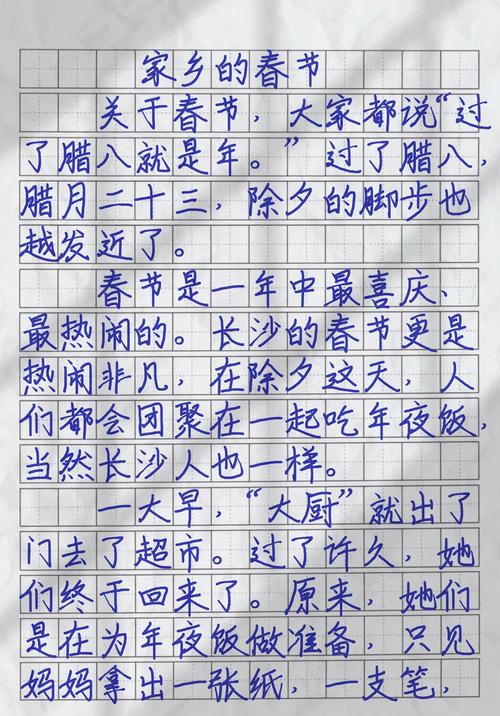 家乡的春节
关于春节，大家都说“过
了腊八就是年。”过了腊八，
腊月二十三，除夕的脚步也
越发近了。
春节是一年中最喜庆、
最热闹的。长沙的春节更是
热闹非凡，在除夕这天，人
们都会团聚在一起吃年夜饭，
当然长沙人也一样。
一大早，“大厨”就出了
门去了超市。过了许久，她
们终于回来了。原来，她们
是在为年夜饭做准备，只见
妈妈拿出一张纸，一支笔，